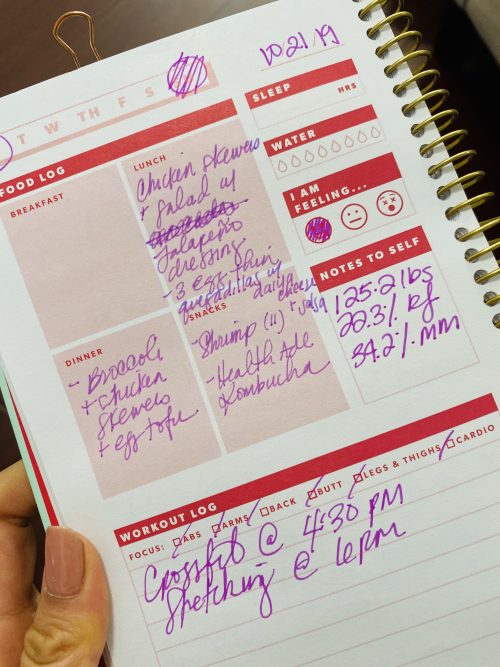 10 21 / 19
T W TH F S
SLEEP
HRS
WATER
I AM FEELING...
NOTES TO SELF
125.2 lbs
22.3% BF
34.2% MM
FOOD LOG
BREAKFAST
LUNCH
Chicken skewers
+ salad w/
jalapeño
dressing
- 3 egg thin
quesadillas w/
daily cheese
+ salsa
SNACKS
- Shrimp (11)
- Health Ade
Kombucha
DINNER
- Broccoli
+ chicken
skewers
+ egg tofu
WORKOUT LOG
FOCUS: ABS ARMS BACK BUTT LEGS & THIGHS CARDIO
Crossfit @ 4:30 PM
Stretching @ 6PM